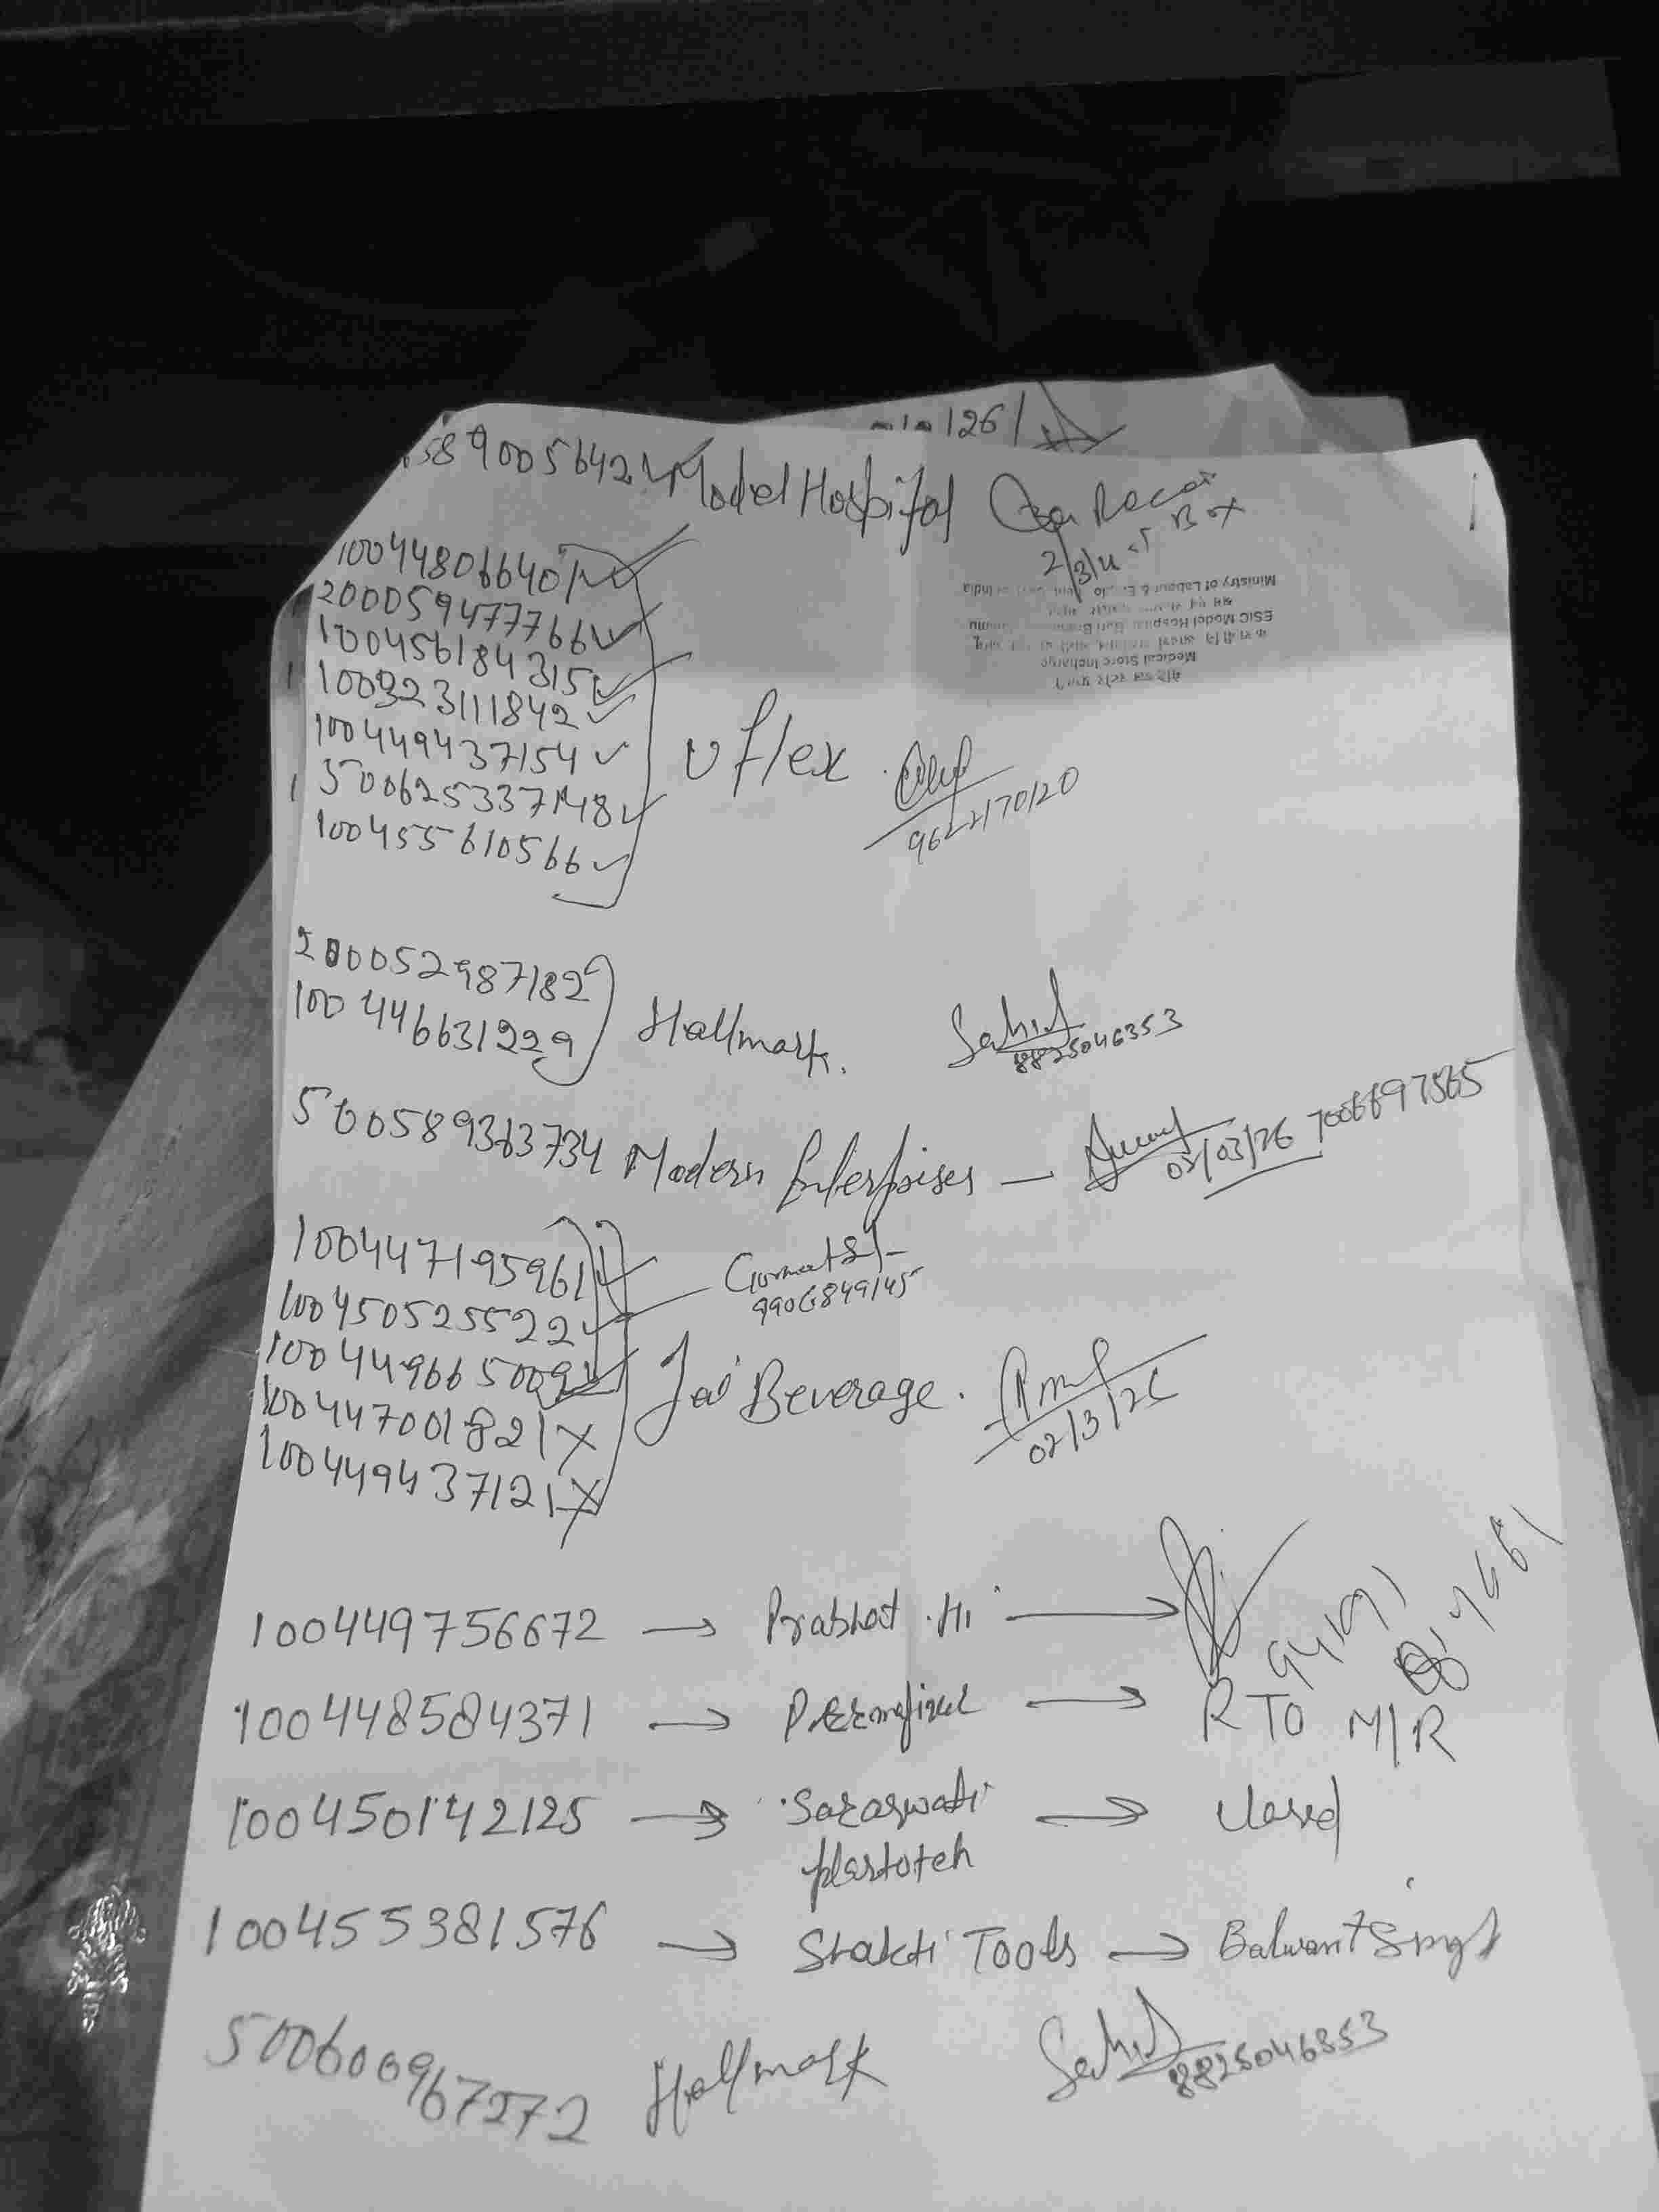 126/
589005642 Model Hospital
2/3/26 5 Box
Ministry of Labour &
ESIC Model Hospital
Medical Store Incharge
100448066401
200059477766
100456184315
100323111842
100449437154
500625337148
100455610566
Uflex
9622170120
200052987182
100446631229
Hallmark.
Sahil
8825046353
500589363734 Modern Enterprises — 03/03/26 7006697565
100447195961
100450525522
100449665009
100447001821 X
100449437121 X
Gurmeet S/-
9906849145
Jai Beverage.
02/3/26
100449756672 → Prabhat Hi →
100448584371 → Permafixed → RTO M/R
100450142125 → Saraswati plastoteh → closed
100455381576 → Shakti Tools → Balwant Singh
500600967272 Hallmark Sahil
8825046353